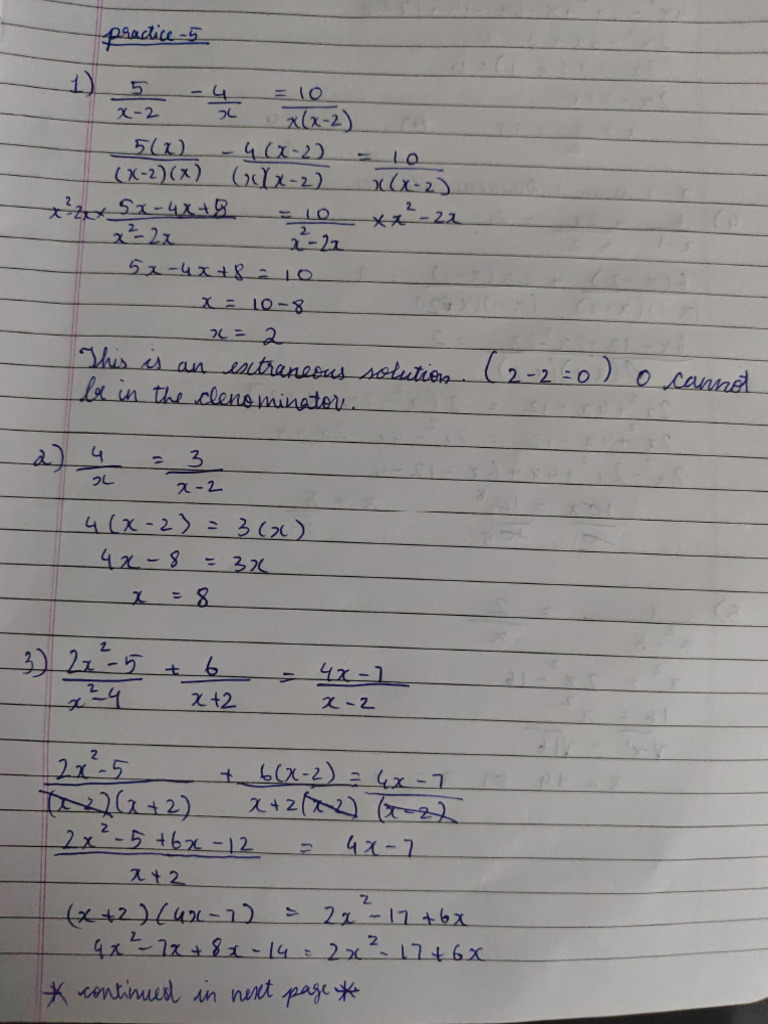 practice-5
1) 5/(x-2) - 4/x = 10/(x(x-2))
5(x)/((x-2)(x)) - 4(x-2)/((x)(x-2)) = 10/(x(x-2))
x²-2x × (5x-4x+8)/(x²-2x) = 10/(x²-2x) × x²-2x
5x-4x+8 = 10
x = 10-8
x = 2
This is an extraneous solution. (2-2=0) 0 cannot
be in the denominator.
2) 4/x = 3/(x-2)
4(x-2) = 3(x)
4x-8 = 3x
x = 8
3) (2x²-5)/(x²-4) + 6/(x+2) = (4x-7)/(x-2)
(2x²-5)/((x-2)(x+2)) + 6(x-2)/(x+2(x-2)) = (4x-7)/(x-2)
(2x²-5+6x-12)/(x+2) = 4x-7
(x+2)(4x-7) = 2x²-17+6x
4x²-7x+8x-14 = 2x²-17+6x
* continued in next page *